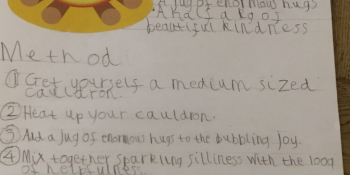 A jug of enormous hugs
And a
beautiful kindness
Method
① Get yourself a medium sized
cauldron.
② Heat up your cauldron.
③ Add a jug of enormous hugs to the bubbling joy.
④ Mix together sparkling silliness with the 100g
of helpfulness.